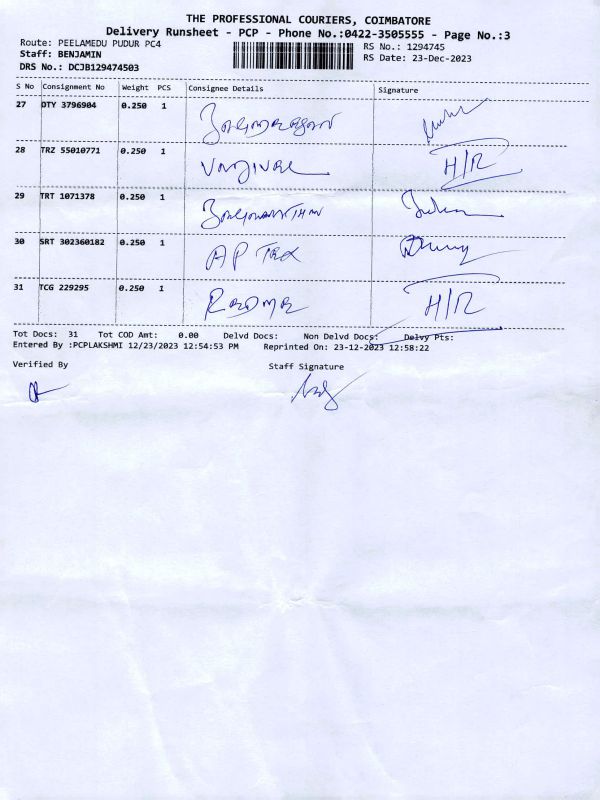 THE PROFESSIONAL COURIERS, COIMBATORE
Delivery Runsheet - PCP - Phone No.:0422-3505555 - Page No.:3
Route: PEELAMEDU PUDUR PC4
RS No.: 1294745
Staff: BENJAMIN
RS Date: 23-Dec-2023
DRS No.: DCJB129474503
S No Consignment No Weight PCS Consignee Details Signature
27 OTY 3796904 0.250 1
28 TRZ 55010771 0.250 1 H/R
29 TRT 1071378 0.250 1
30 SRT 302360182 0.250 1 AP Tex
31 TCG 229295 0.250 1 H/R
Tot Docs: 31 Tot COD Amt: 0.00 Delvd Docs: Non Delvd Docs: Delvy Pts:
Entered By :PCPLAKSHMI 12/23/2023 12:54:53 PM Reprinted On: 23-12-2023 12:58:22
Verified By Staff Signature